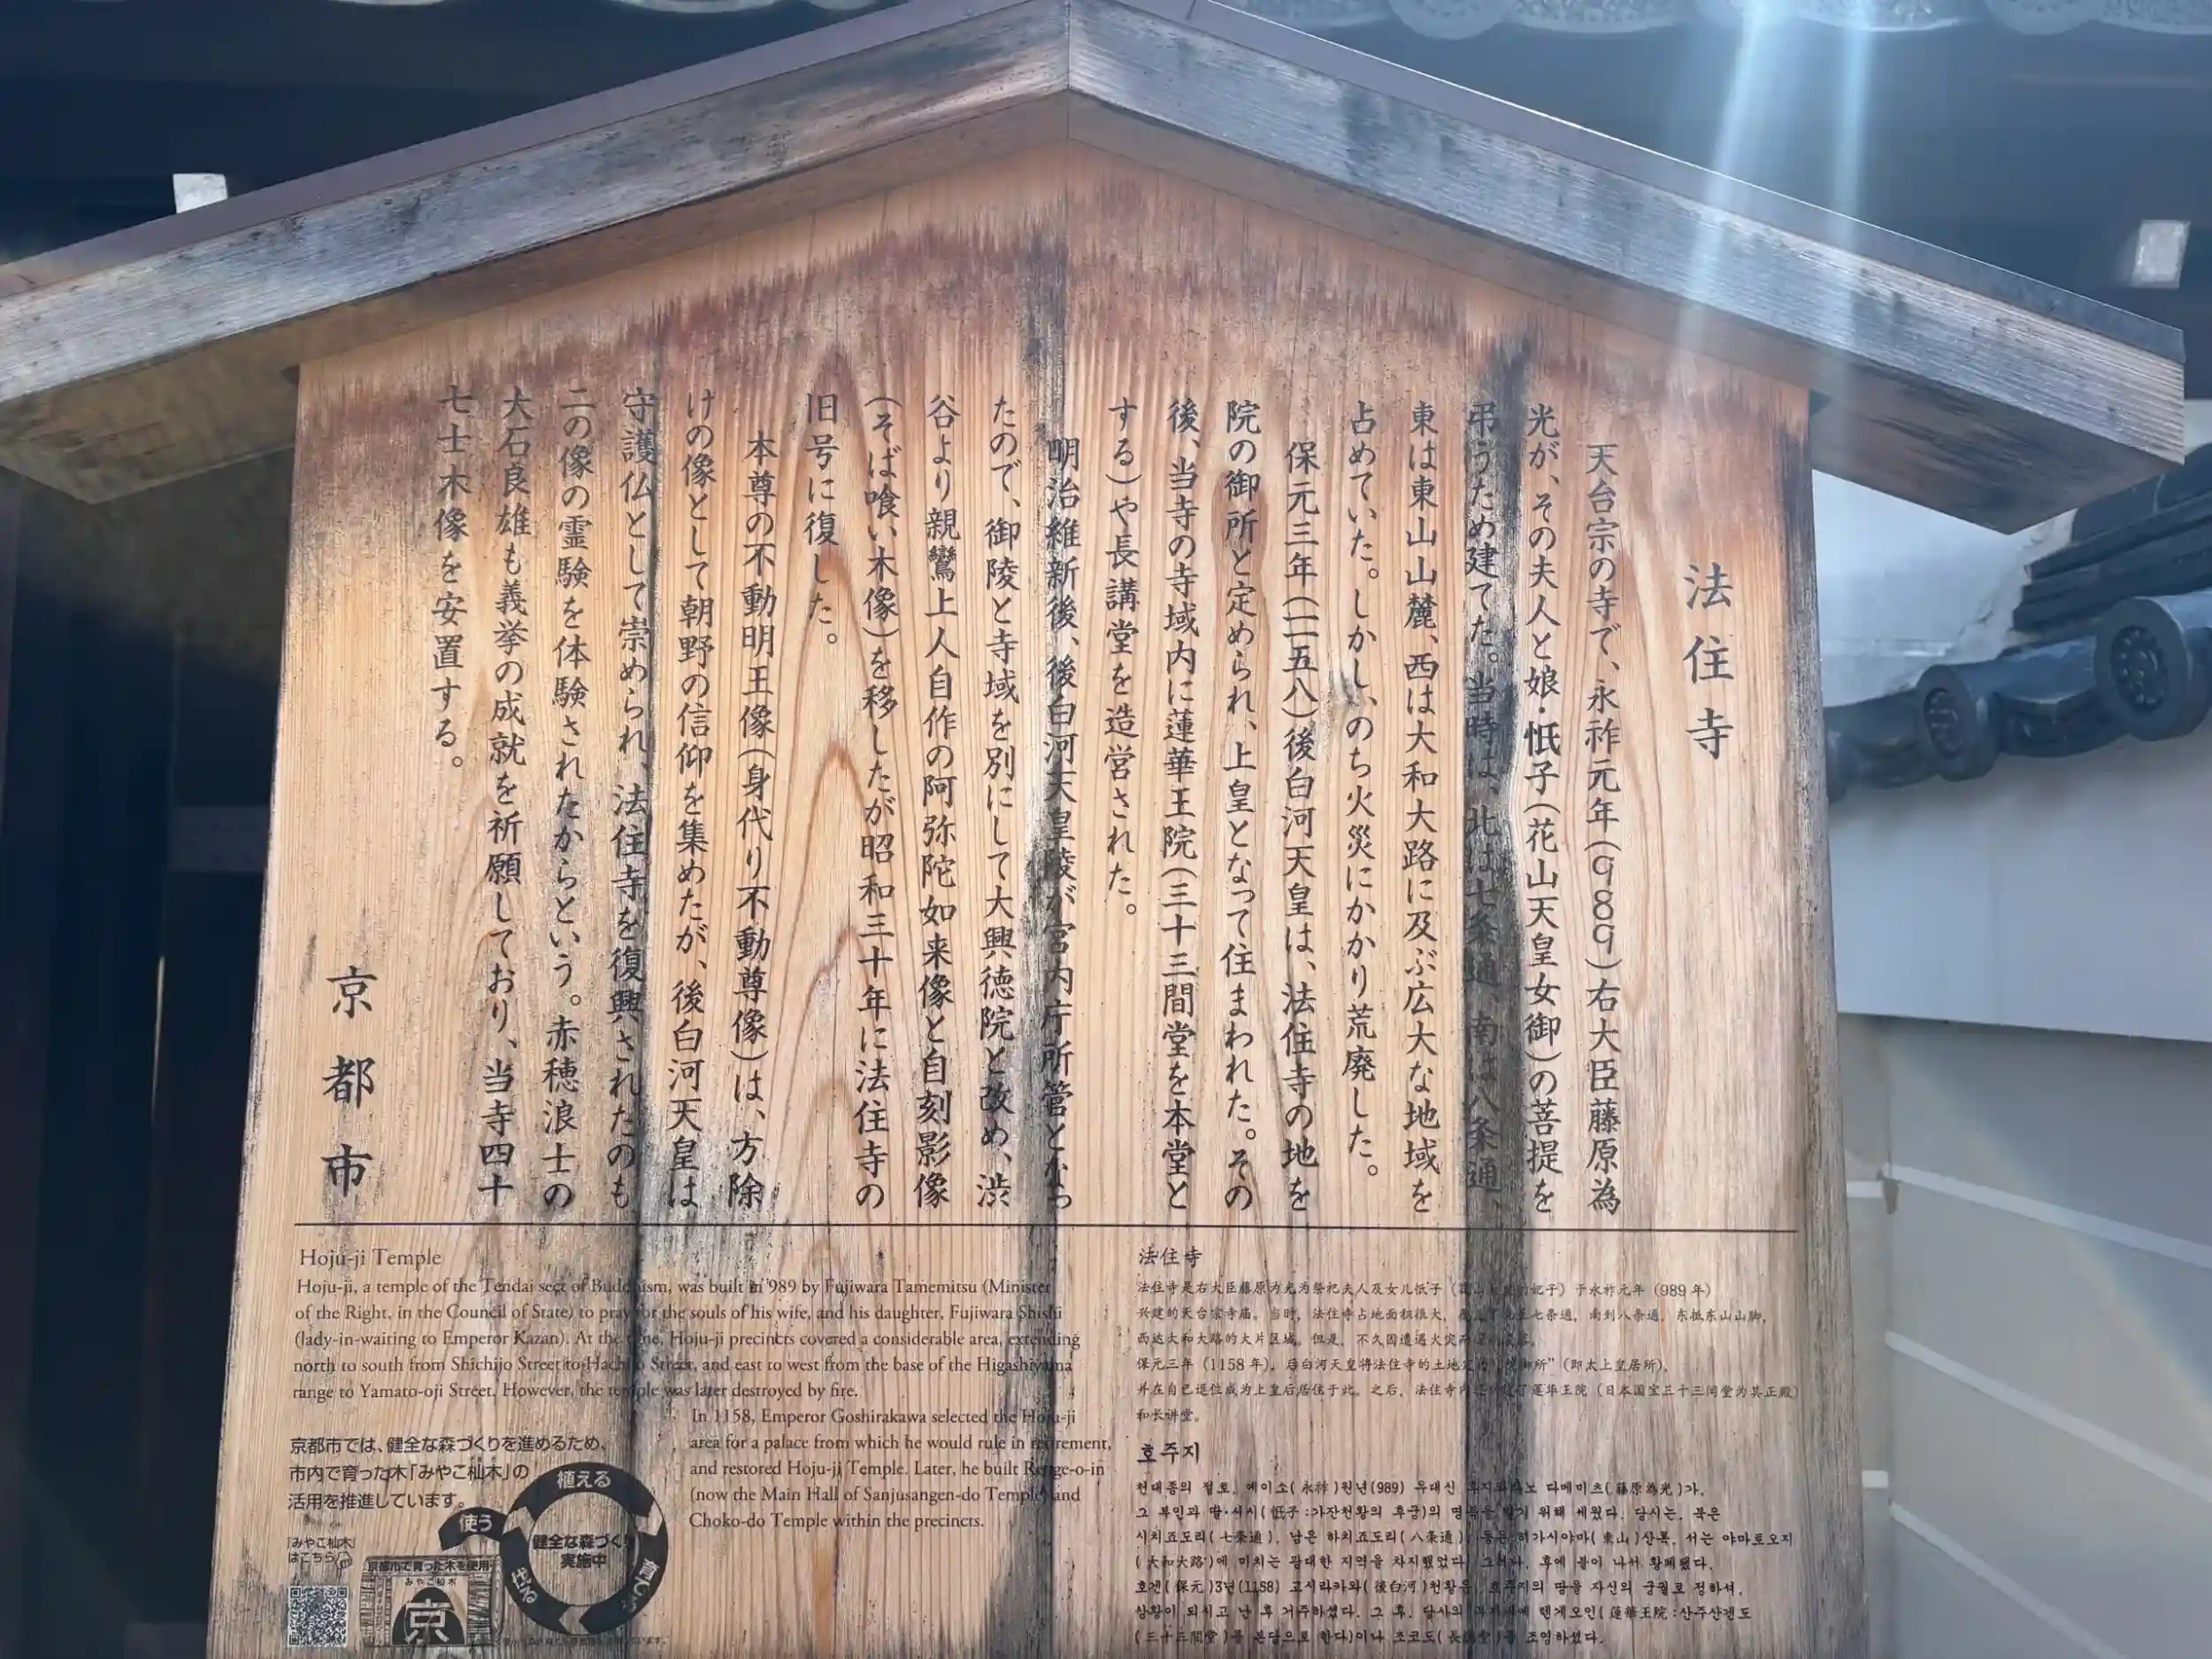 法住寺
天台宗の寺で、永祚元年(989)右大臣藤原為
光が、その夫人と娘・忯子(花山天皇女御)の菩提を
弔うため建てた。当時は、北は七条通、南は八条通、
東は東山山麓、西は大和大路に及ぶ広大な地域を
占めていた。しかし、のち火災にかかり荒廃した。
保元三年(一一五八)後白河天皇は、法住寺の地を
院の御所と定められ、上皇となって住まわれた。その
後、当寺の寺域内に蓮華王院(三十三間堂を本堂と
する)や長講堂を造営された。
明治維新後、後白河天皇陵が宮内庁所管となっ
たので、御陵と寺域を別にして大興徳院と改め、渋
谷より親鸞上人自作の阿弥陀如来像と自刻影像
(そば喰い木像)を移したが昭和三十年に法住寺の
旧号に復した。
本尊の不動明王像(身代り不動尊像)は、方除
けの像として朝野の信仰を集めたが、後白河天皇は
守護仏として崇められ、法住寺を復興されたのも
二の像の霊験を体験されたからという。赤穂浪士の
大石良雄も義挙の成就を祈願しており、当寺四十
七士木像を安置する。
京都市
Hoju-ji Temple
Hoju-ji, a temple of the Tendai sect of Buddhism, was built in 989 by Fujiwara Tamemitsu (Minister
of the Right, in the Council of State) to pray for the souls of his wife, and his daughter, Fujiwara Shishi
(lady-in-waiting to Emperor Kazan). At the time, Hoju-ji precincts covered a considerable area, extending
north to south from Shichijo Street to Hachijo Street, and east to west from the base of the Higashiyama
range to Yamato-oji Street. However, the temple was later destroyed by fire.
In 1158, Emperor Goshirakawa selected the Hoju-ji
area for a palace from which he would rule in retirement,
and restored Hoju-ji Temple. Later, he built Renge-o-in
(now the Main Hall of Sanjusangen-do Temple) and
Choko-do Temple within the precincts.
京都市では、健全な森づくりを進めるため、
市内で育った木「みやこ杣木」の
活用を推進しています。
みやこ杣木
はこちら
植える
育てる
伐る
使う
健全な森づくり
実施中
京都市で育った木を使用
みやこ杣木
京
法住寺
法住寺是右大臣藤原为光为祭祀夫人及女儿忯子 于永祚元年（989年）
兴建的天台宗寺庙。当时，法住寺占地面积很大，七条通，南到八条通，东抵东山山脚，
西达大和大路的大片区域。但是，不久因遭遇火灾
保元三年（1158年），后白河天皇将法住寺的土地 御所”（即太上皇居所），
并在自己退位成为上皇后居住于此。之后，法住寺内 莲华王院（日本国宝三十三间堂为其正殿）
和长讲堂。
호주지
천태종의 절로, 에이소(永祚)원년(989) 우대신 다메미츠(藤原為光)가,
그 부인과 딸·시시(忯子:가잔천황의 후궁)의 명복을 빌기 위해 세웠다. 당시는, 북은
시치죠도리(七条通), 남은 하치죠도리(八条通), 동은 히가시야마(東山)산록, 서는 야마토오지
(大和大路)에 미치는 광대한 지역을 차지했었다. 그러나, 후에 불이 나서 황폐됐다.
호겐(保元)3년(1158) 고시라카와(後白河)천황은, 호주지의 땅을 자신의 궁궐로 정하셔,
상황이 되시고 난 후 거주하셨다. 그 후, 당사의 렌게오인(蓮華王院:산주산겐도
(三十三間堂)를 본당으로 한다)이나 조코도(長講堂)를 조영하셨다.